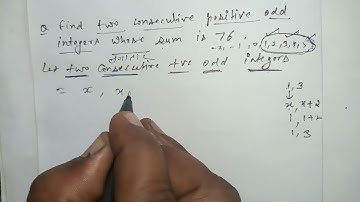 Q Find two consecutive positive odd
integers whose sum is 76.
-2, -1, 0, 1, 2, 3, 4, 5
Let two consecutive +ve odd integers
= x, x
1, 3
↓
x, x+2
1, 1+2
1, 3